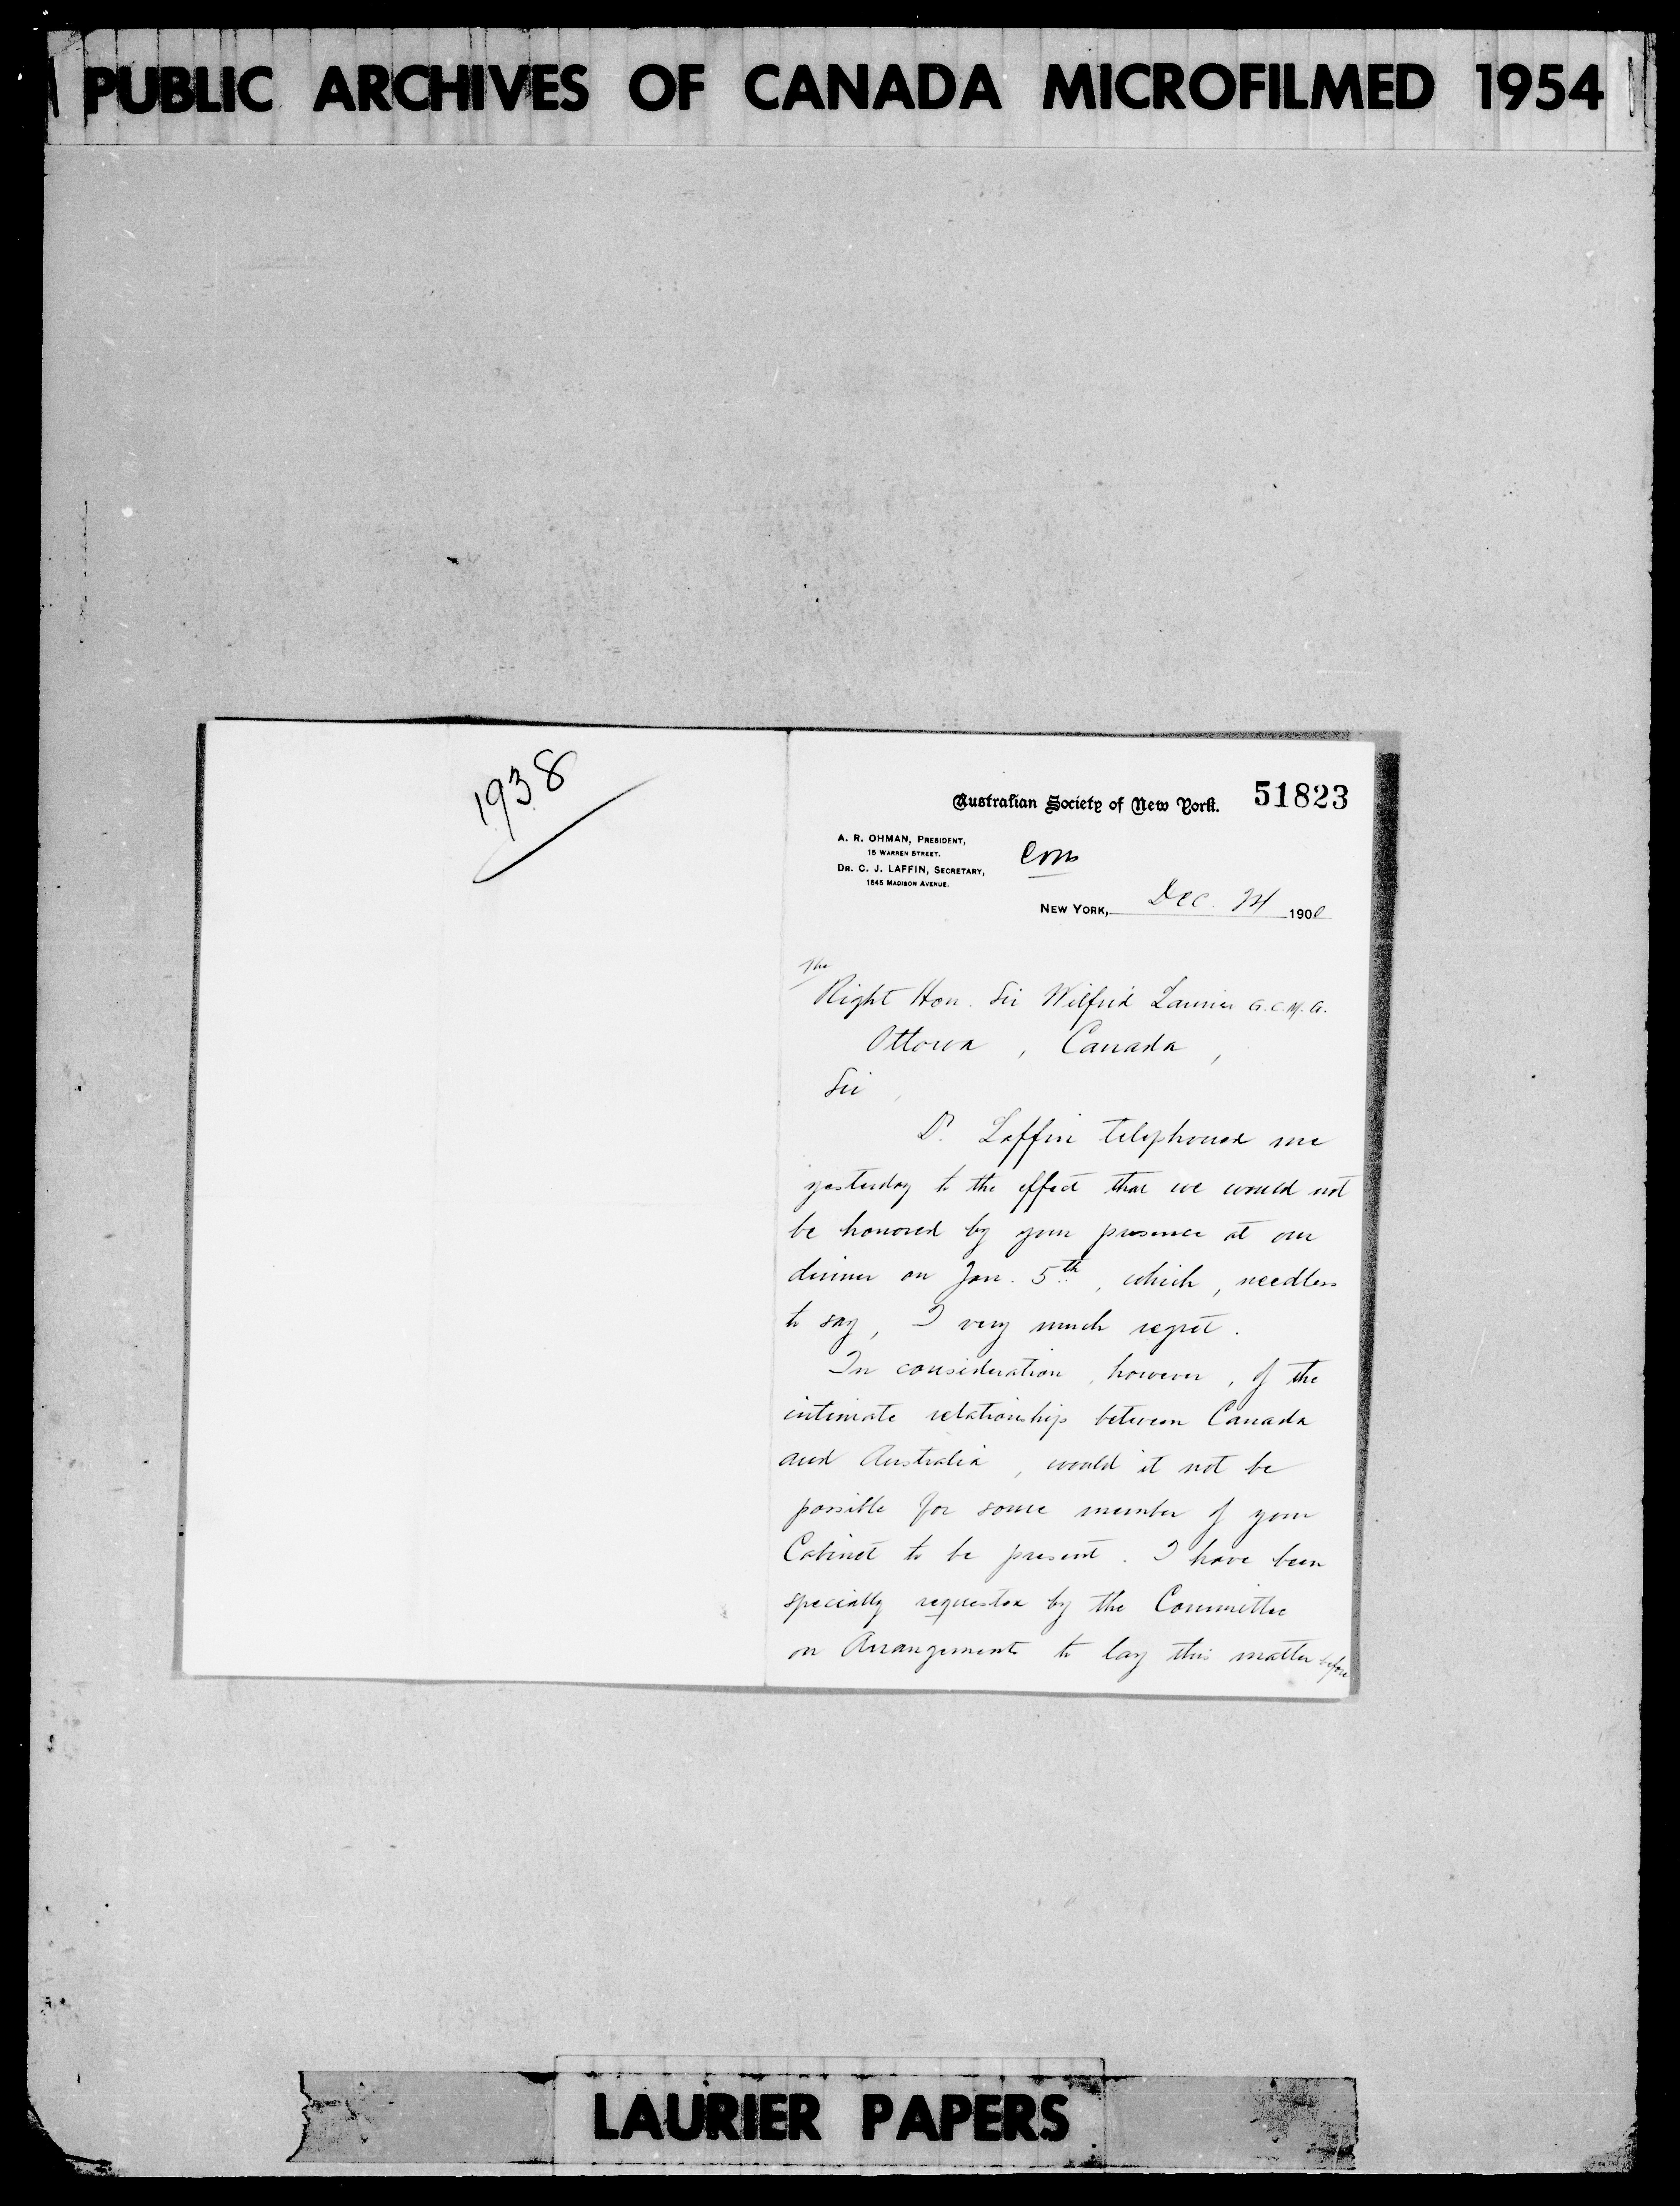 PUBLIC ARCHIVES OF CANADA MICROFILMED 1954
1938
Australian Society of New York.
51823
A. R. OHMAN, PRESIDENT,
15 WARREN STREET.
DR. C. J. LAFFIN, SECRETARY,
1545 MADISON AVENUE.
NEW YORK, Dec. 24 1900
The
Right Hon. Sir Wilfrid Laurier G.C.M.G.
Ottowa, Canada,
Sir,
Dr. Laffin telephoned me
yesterday to the effect that we would not
be honored by your presence at our
dinner on Jan. 5th, which, needless
to say, I very much regret.
In consideration, however, of the
intimate relationship between Canada
and Australia, would it not be
possible for some member of your
Cabinet to be present. I have been
specially requested by the Committee
on Arrangements to lay this matter before
LAURIER PAPERS